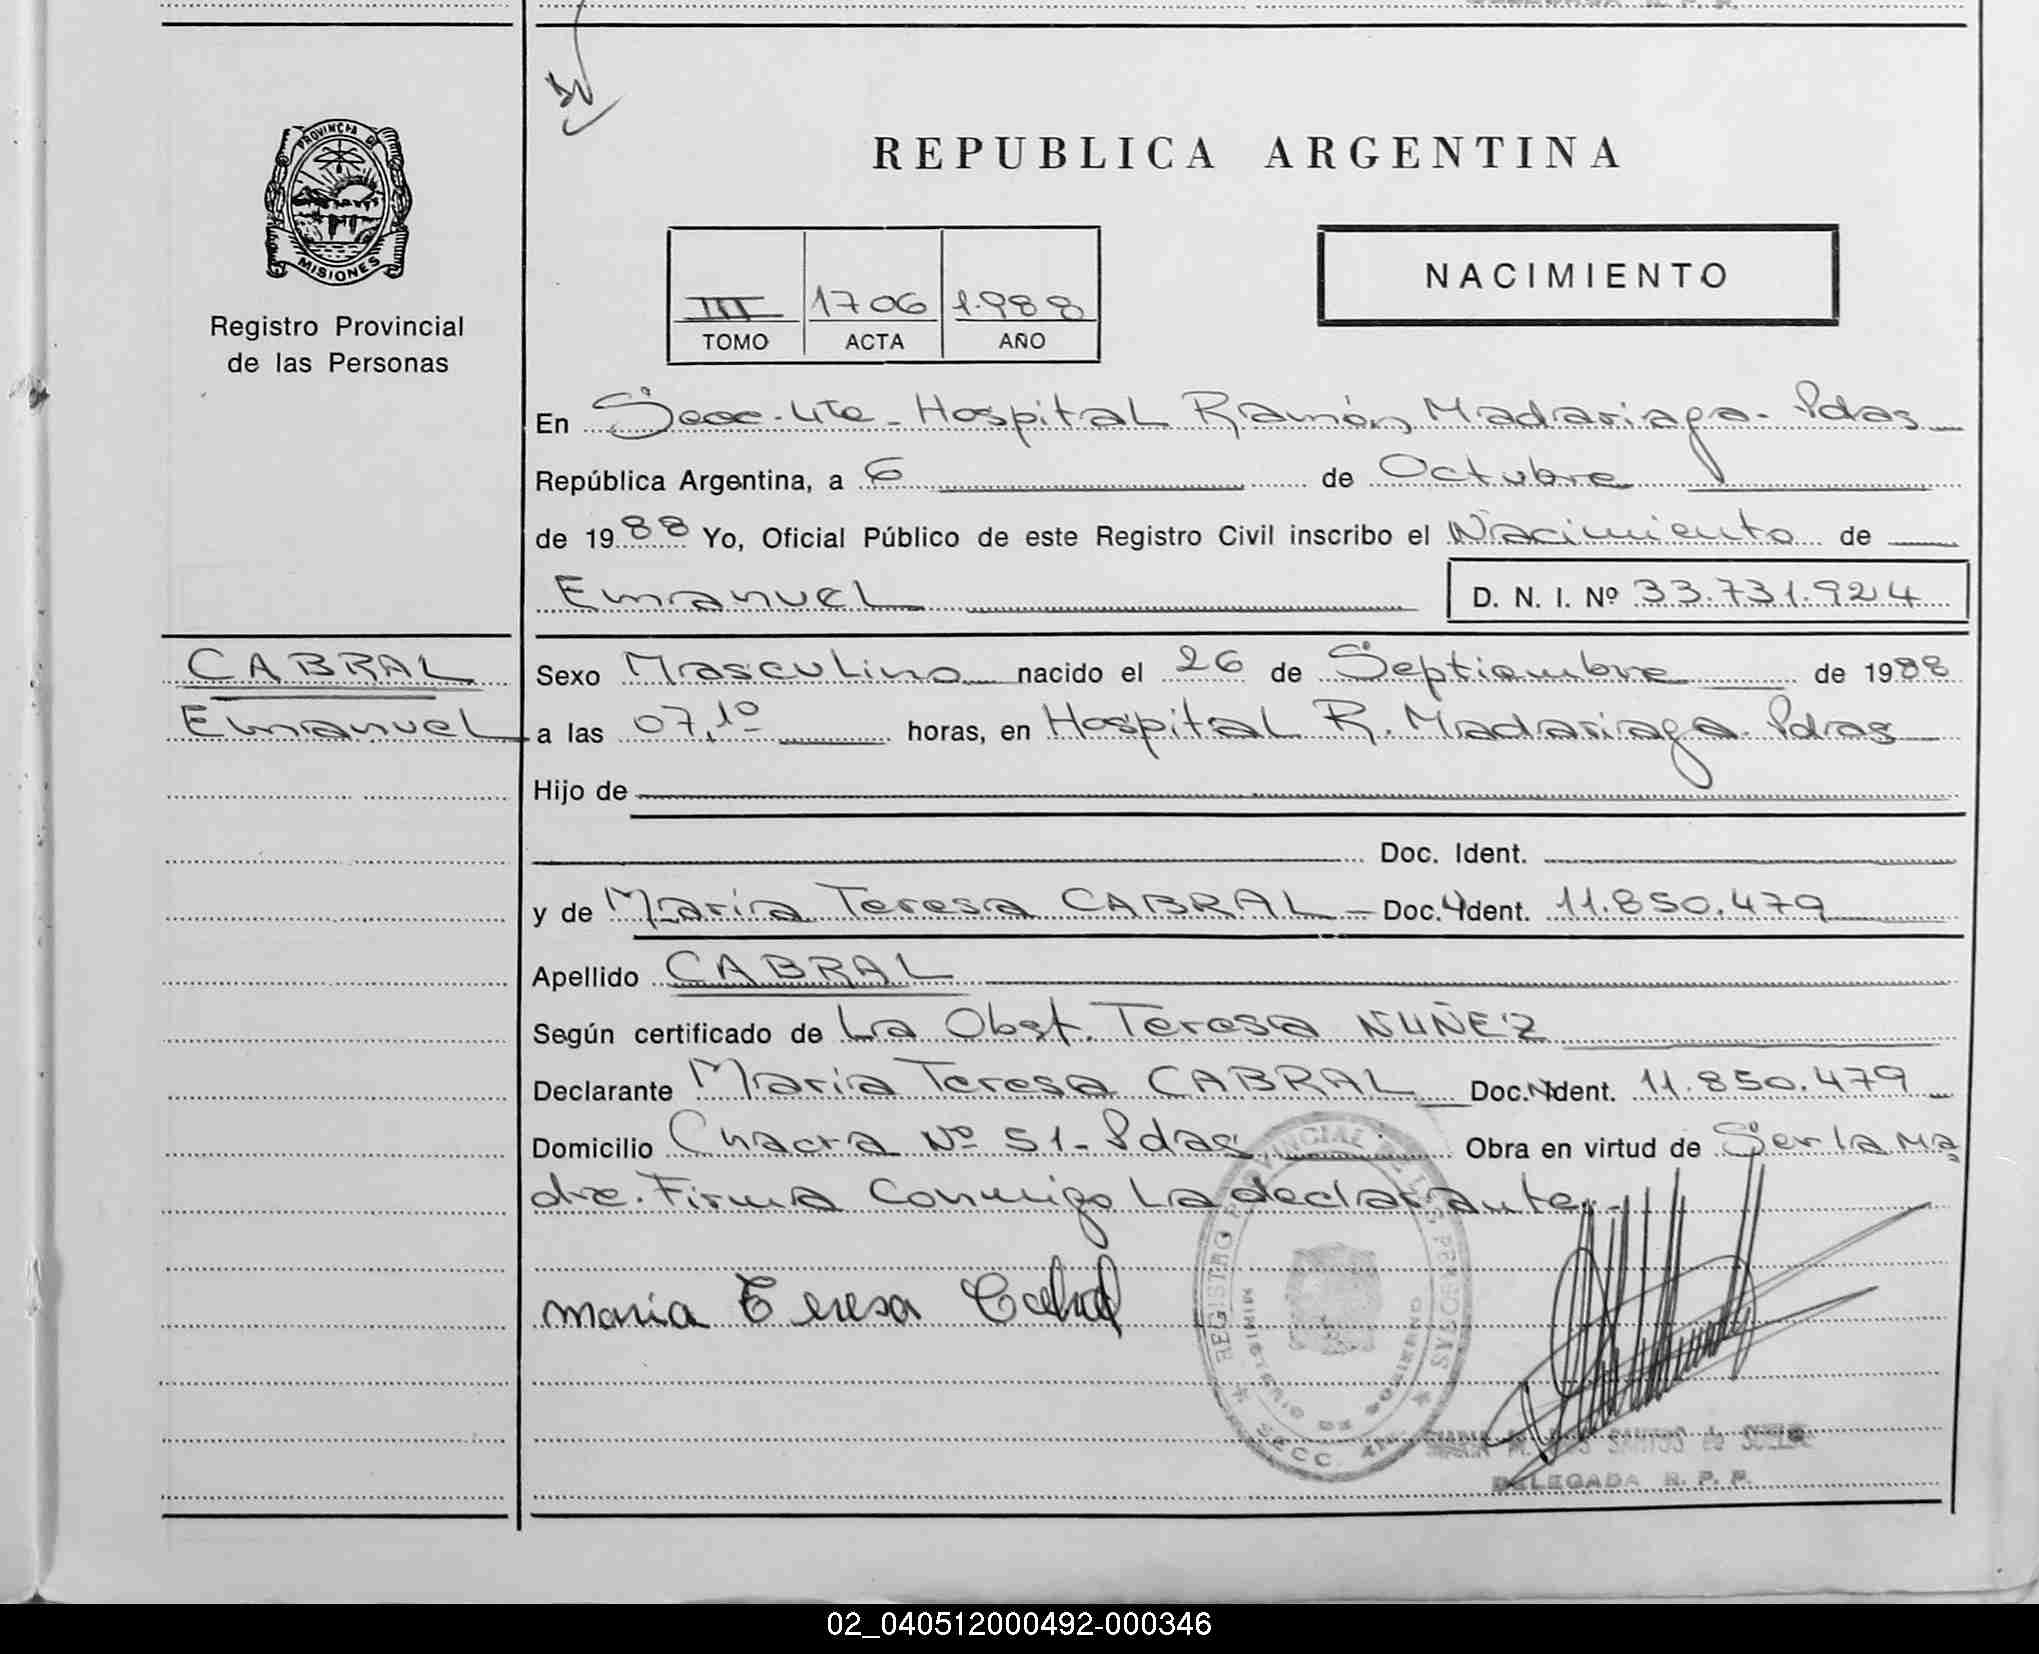 REPUBLICA ARGENTINA
PROVINCIA DE
MISIONES
Registro Provincial
de las Personas
III 1706 1.988
TOMO ACTA AÑO
NACIMIENTO
En Secc. 4ta - Hospital Ramón Madariaga - Pdas
República Argentina, a 6 de Octubre
de 1988 Yo, Oficial Público de este Registro Civil inscribo el Nacimiento de
Emanuel D. N. I. Nº 33.731.924
CABRAL
Emanuel
Sexo Masculino nacido el 26 de Septiembre de 1988
a las 07,10 horas, en Hospital R. Madariaga. Pdas
Hijo de
Doc. Ident.
y de María Teresa CABRAL - Doc. Ident. 11.850.479
Apellido CABRAL
Según certificado de La Obst. Teresa NUÑEZ
Declarante María Teresa CABRAL Doc. Ident. 11.850.479
Domicilio Chacra Nº 51 - Pdas Obra en virtud de Ser la ma
dre. Firma conmigo la declarante.
maria Teresa Cabral
REGISTRO PROVINCIAL DE LAS PERSONAS
SECC.
SANTOS de
DELEGADA R. P. P.
02_040512000492-000346